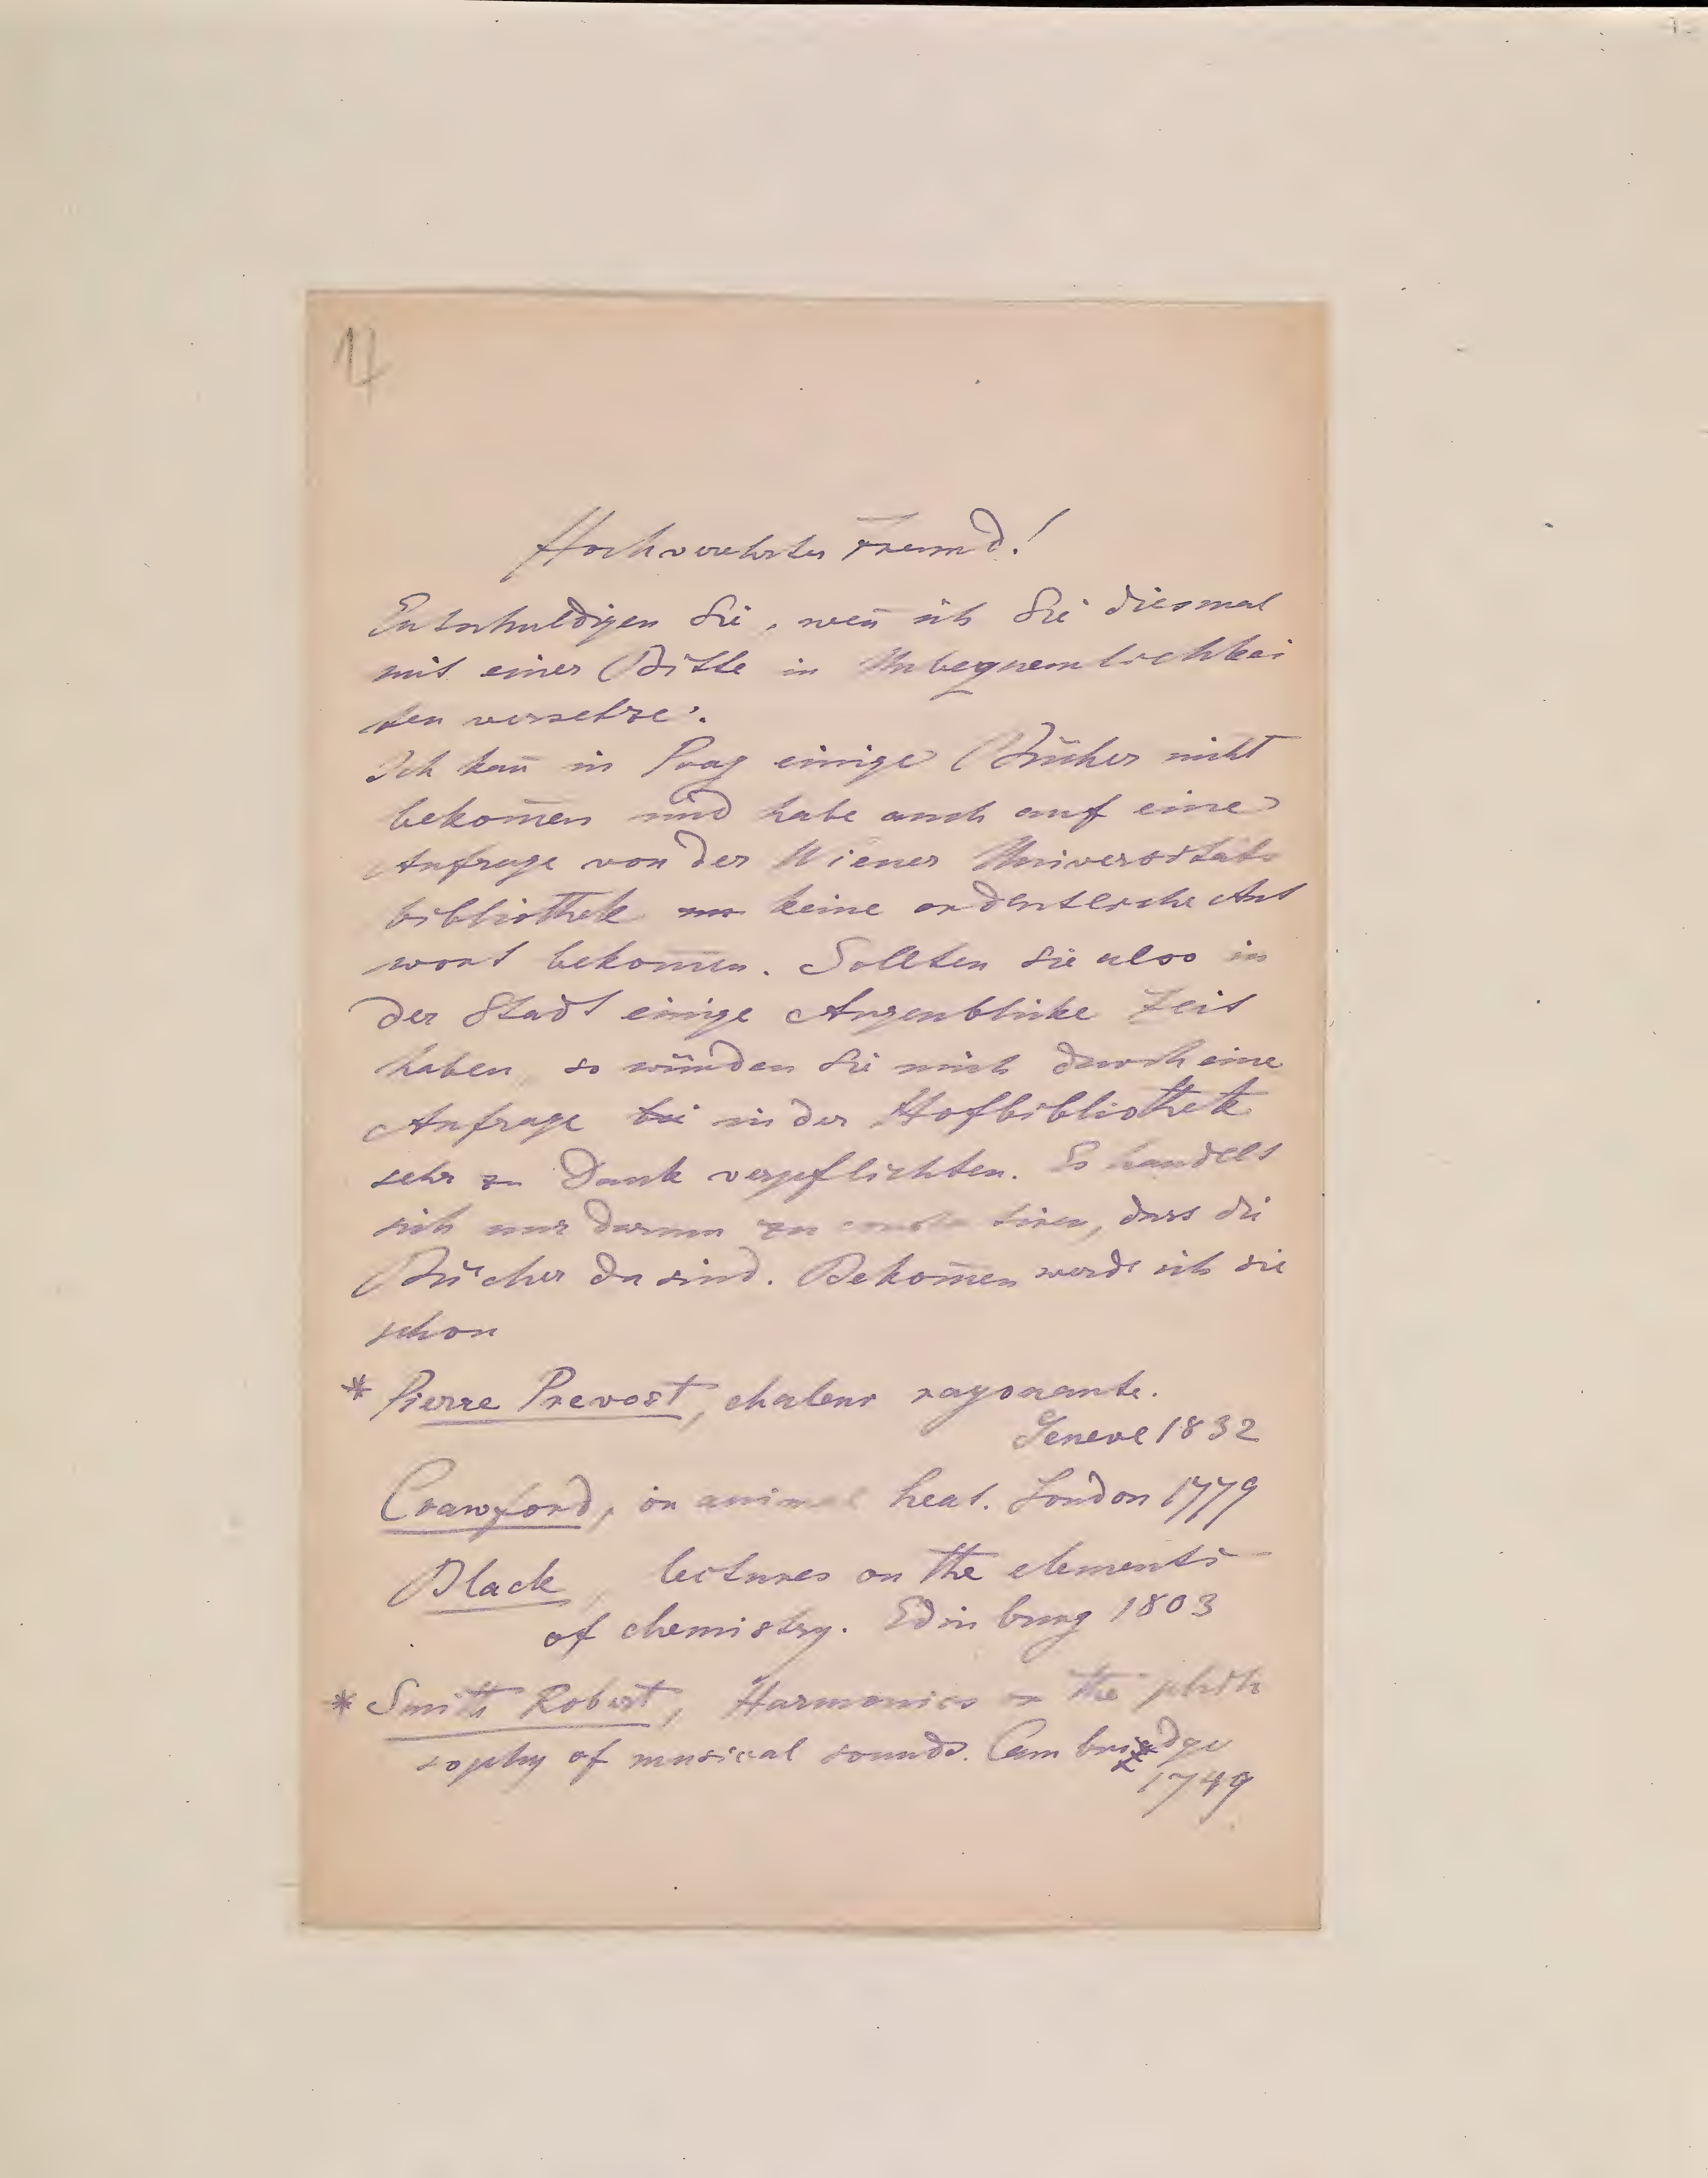 17
Hochverehrter Freund!
Entschuldigen Sie, weñ ich Sie diesmal
mit einer Bitte in Unbequemlichkei
ten versetze.
Ich kañ in Prag einige Bücher nicht
bekom̅en und habe auch auf eine
Anfrage von der Wiener Universitäts
bibliothek keine ordentliche Ant
wort bekom̅en. Sollten Sie also in
der Stadt einige Augenblicke Zeit
haben, so würden Sie mich durch eine
Anfrage bei in der Hofbibliothek
sehr zu Dank verpflichten. Es handelt
sich nur darum zu constatiren, dass die
Bücher da sind. Bekom̅en werde ich sie
schon
* Pierre Prevost, chaleur rayonante.
Geneve 1832
Crawford, on animal heat. London 1779
Black, lectures on the elements
of chemistry. Edinburg 1803
* Smith Robert, Harmonics or the philo
sophy of musical sounds. Cambridge
1749